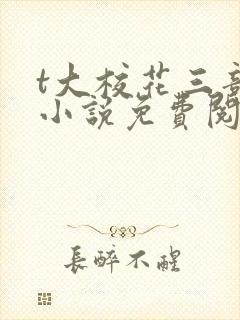 t大校花三部
小说免費閱
長醉不醒